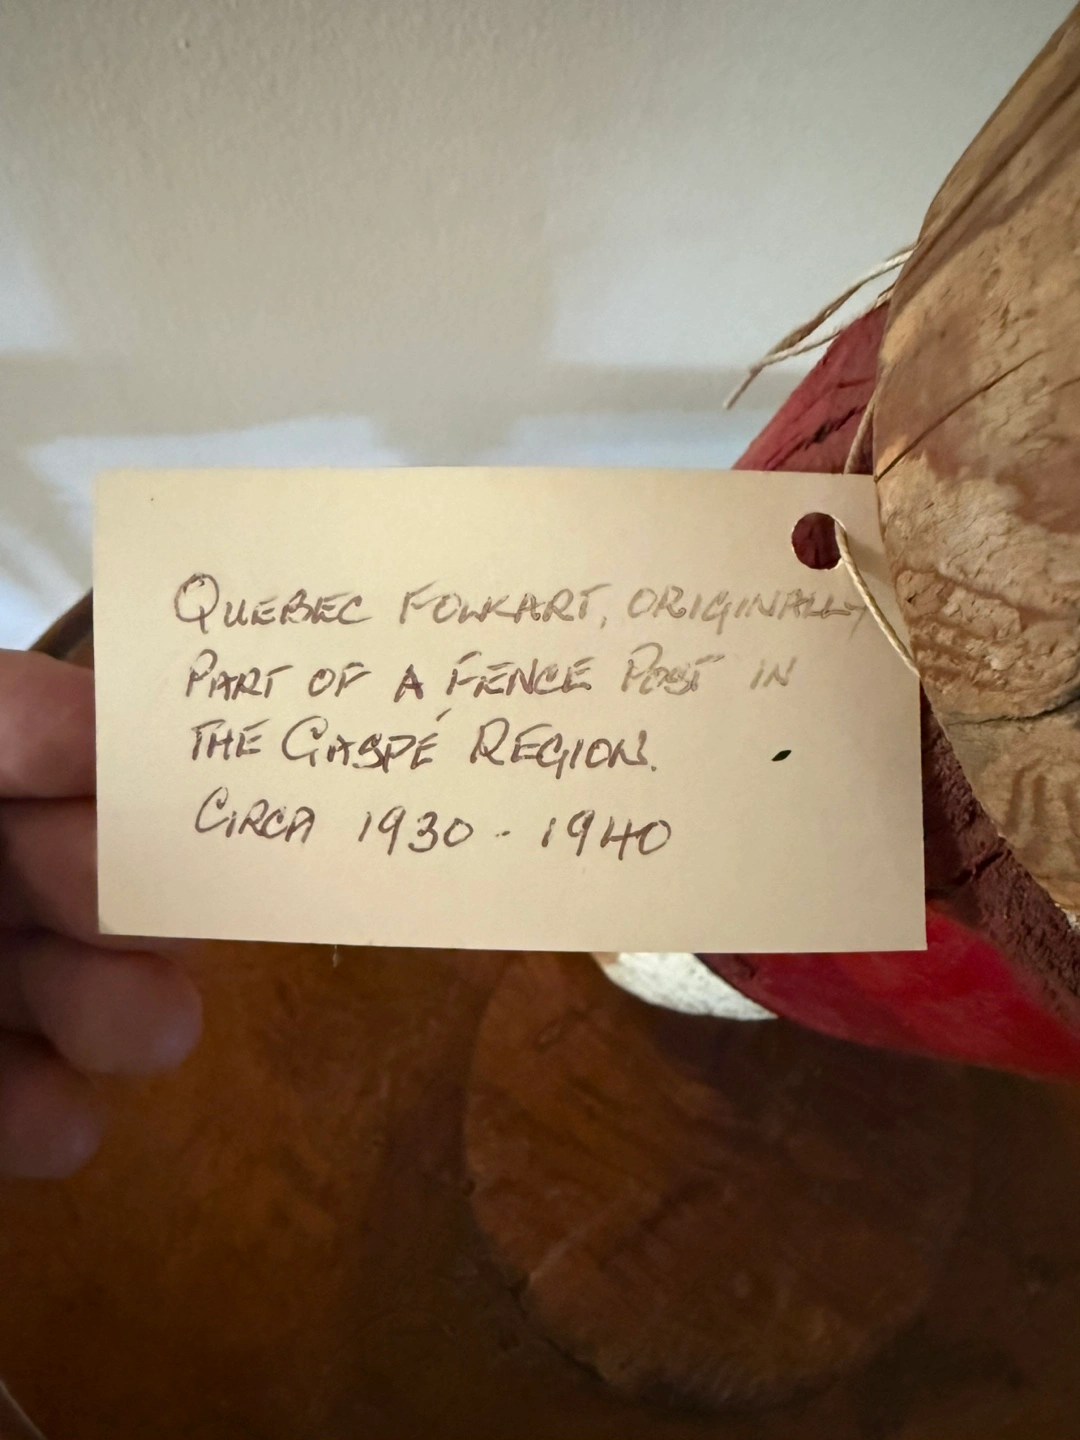 QUEBEC FOLKART, ORIGINALLY
PART OF A FENCE POST IN
THE GASPÉ REGION.
CIRCA 1930 - 1940